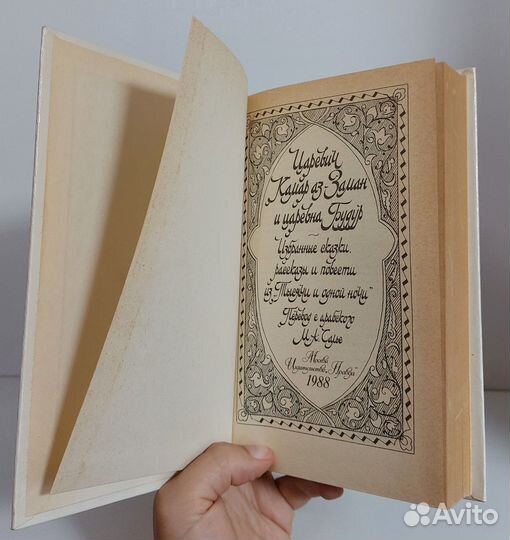 Царевич
Камар аз-Заман
и царевна Будур
Избранные сказки,
рассказы и повести
из „Тысячи и одной ночи"
Перевод с арабского
М. А. Салье
Москва
Издательство „Правда"
1988
Avito